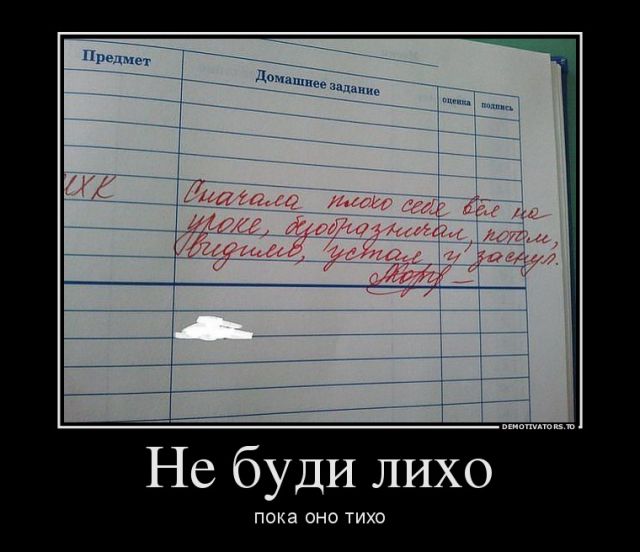 Предмет
Домашнее задание
оценка
подпись
МХК
Сначала плохо себя вёл на
уроке, безобразничал, потом,
видимо, устал и заснул.
DEMOTIVATORS.TO
Не буди лихо
пока оно тихо